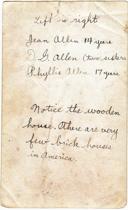 Left to right
Jean Allen 14 years
D. G. Allen (two sisters
Phyllis Allen. 17 years
Notice the wooden
house. There are very
few brick houses
in America.